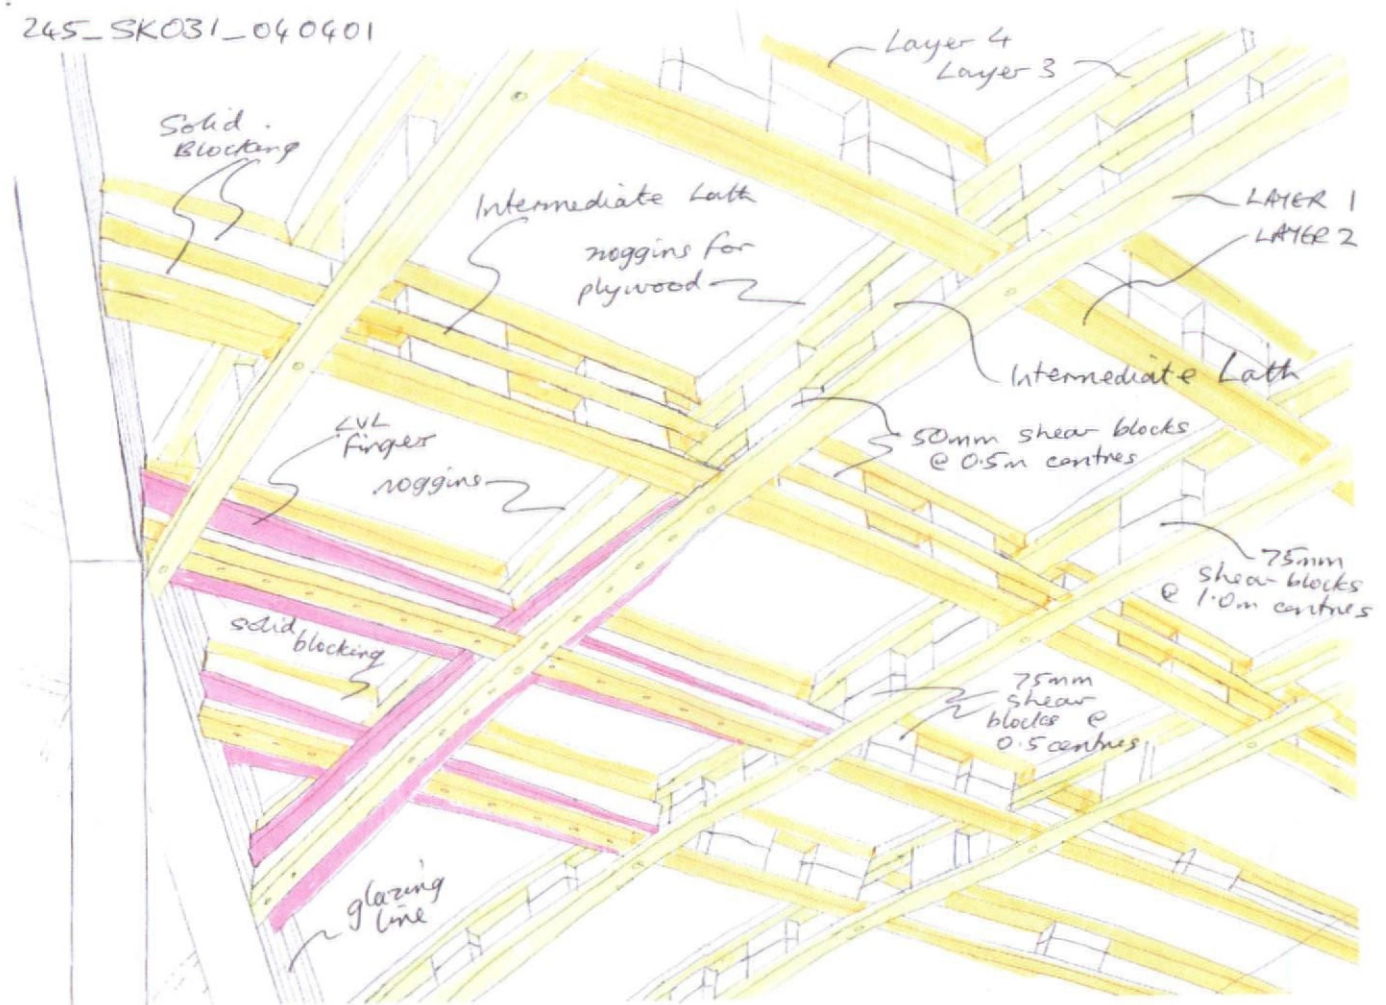 245_SK031_040401
Layer 4
Layer 3
Solid
Blocking
Intermediate Lath
noggins for
plywood
LAYER 1
LAYER 2
Intermediate Lath
LVL
finger
noggins
50mm shear blocks
@ 0.5m centres
75mm
shear blocks
@ 1.0m centres
solid
blocking
75mm
shear
blocks @
0.5 centres
glazing
line